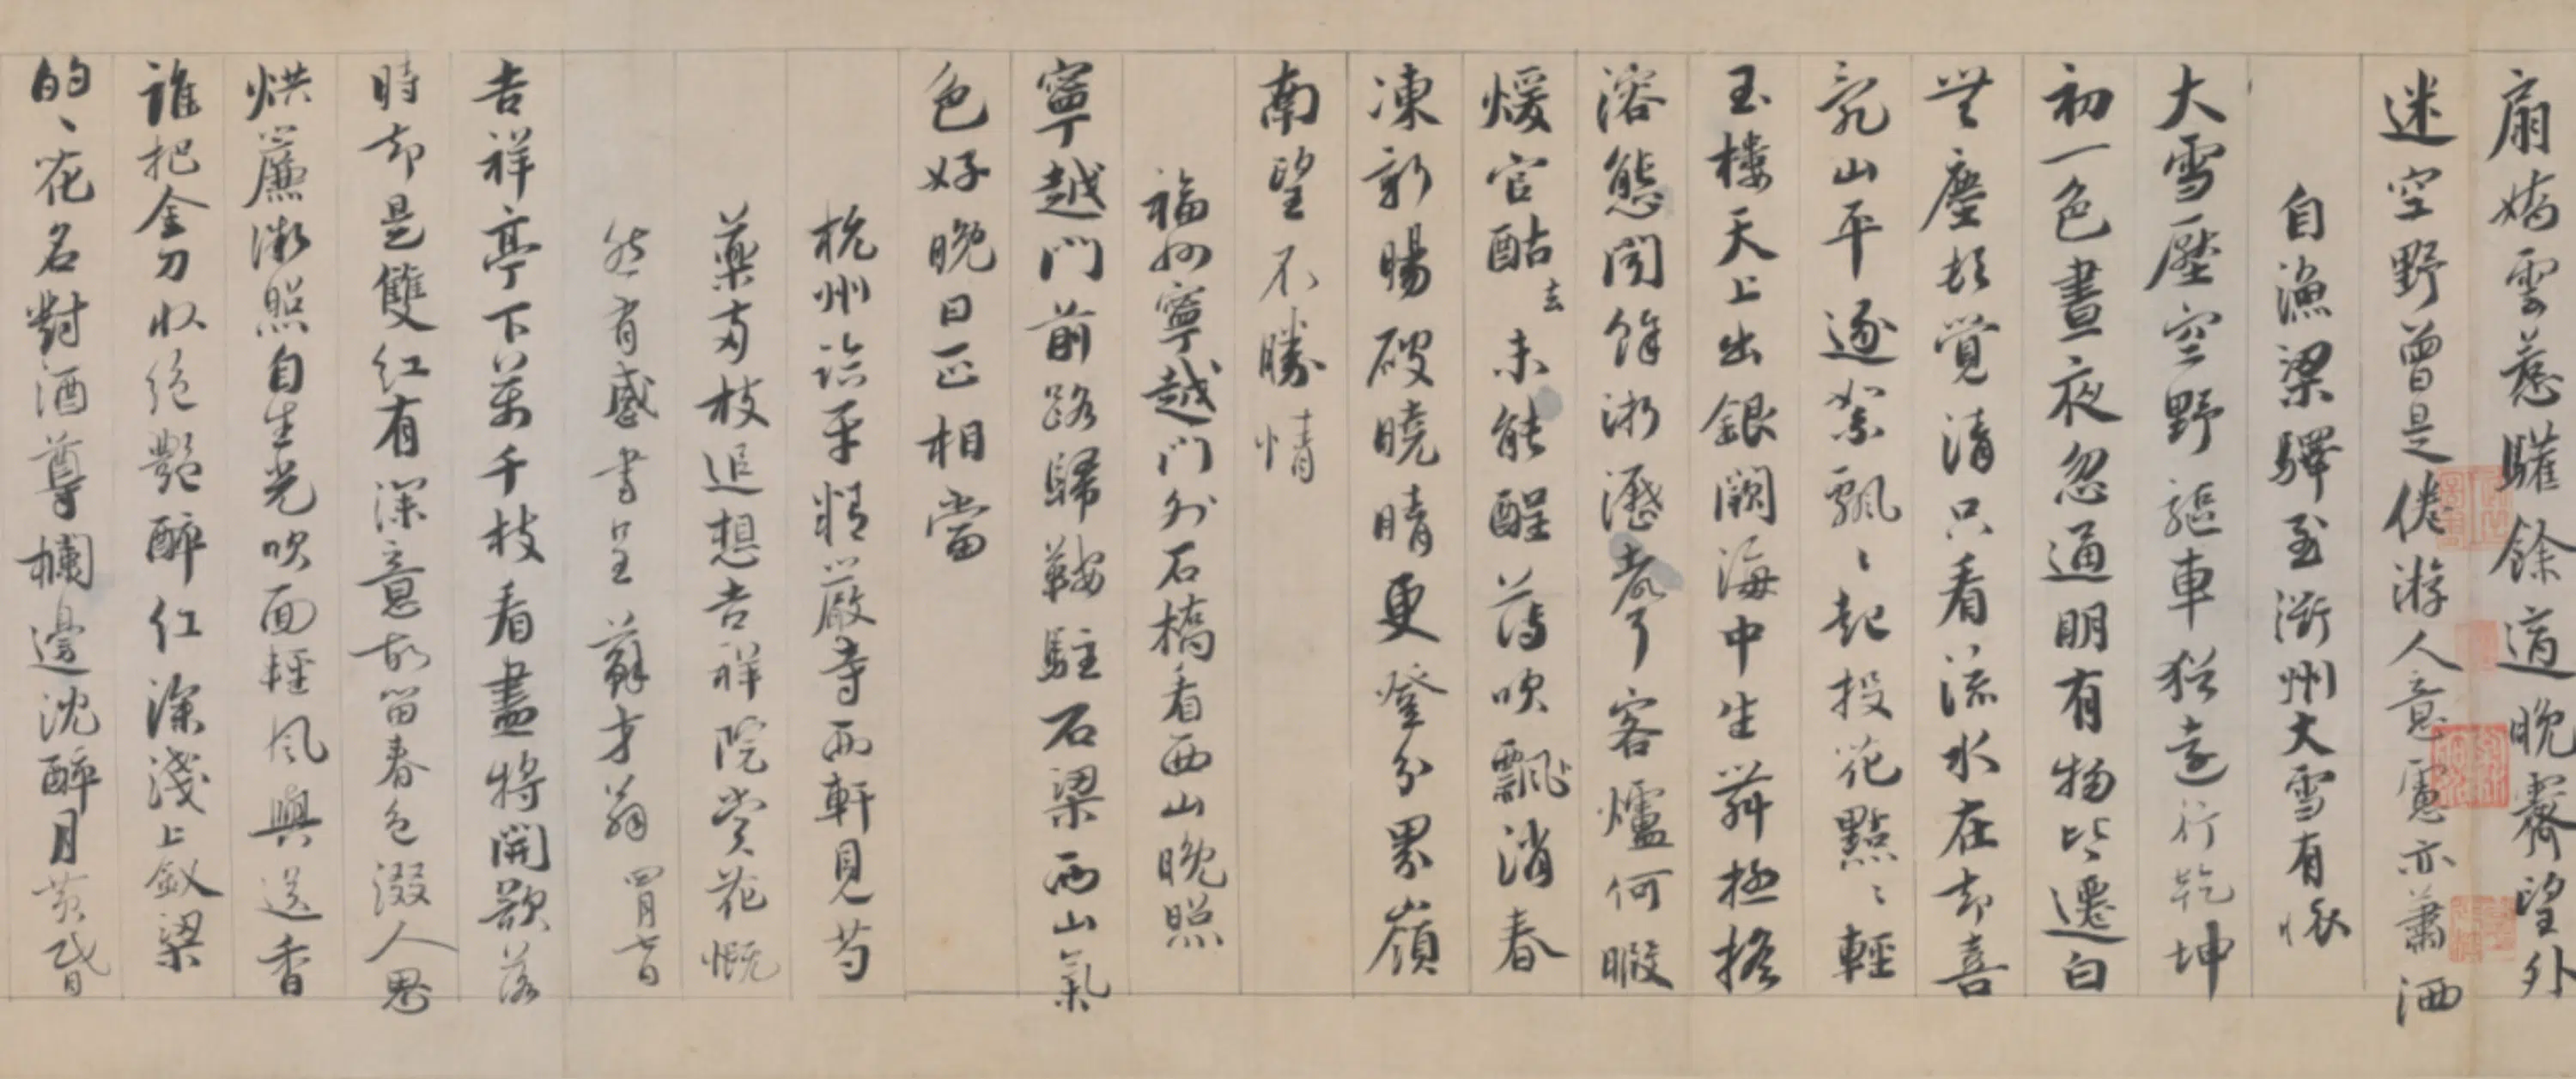 扇嬌雲蕊驩餘道晚霽望外
迷空野曾是倦游人意寬亦蕭洒
自漁梁驛至衢州大雪有懷
大雪壓空野驅車猶遠行乾坤
初一色晝夜忽通明有物皆遷白
無塵頓覺清只看流水在却喜
亂山平逐絮飄〻起投花點〻輕
玉樓天上出銀闕海中生舞極搖
溶態聞餘淅瀝聲客爐何暇
煖官酤去未能醒薄吹飄消春
凍新暘破曉晴更登分界嶺
南望不勝情
福州寧越門外石橋看西山晚照
寧越門前路歸鞍駐石梁西山氣
色好晚日正相當
杭州臨平精嚴寺西軒見芍
藥兩枝追想吉祥院賞花慨
然有感書呈蘇才翁四月七日
吉祥亭下萬千枝看盡將開欲落
時却是雙紅有深意故留春色綴人思
烘簾微照自生光吹面輕風與送香
誰把金刀收絕艷醉紅深淺上釵梁
的〻花名對酒尊欄邊沈醉月黃昏